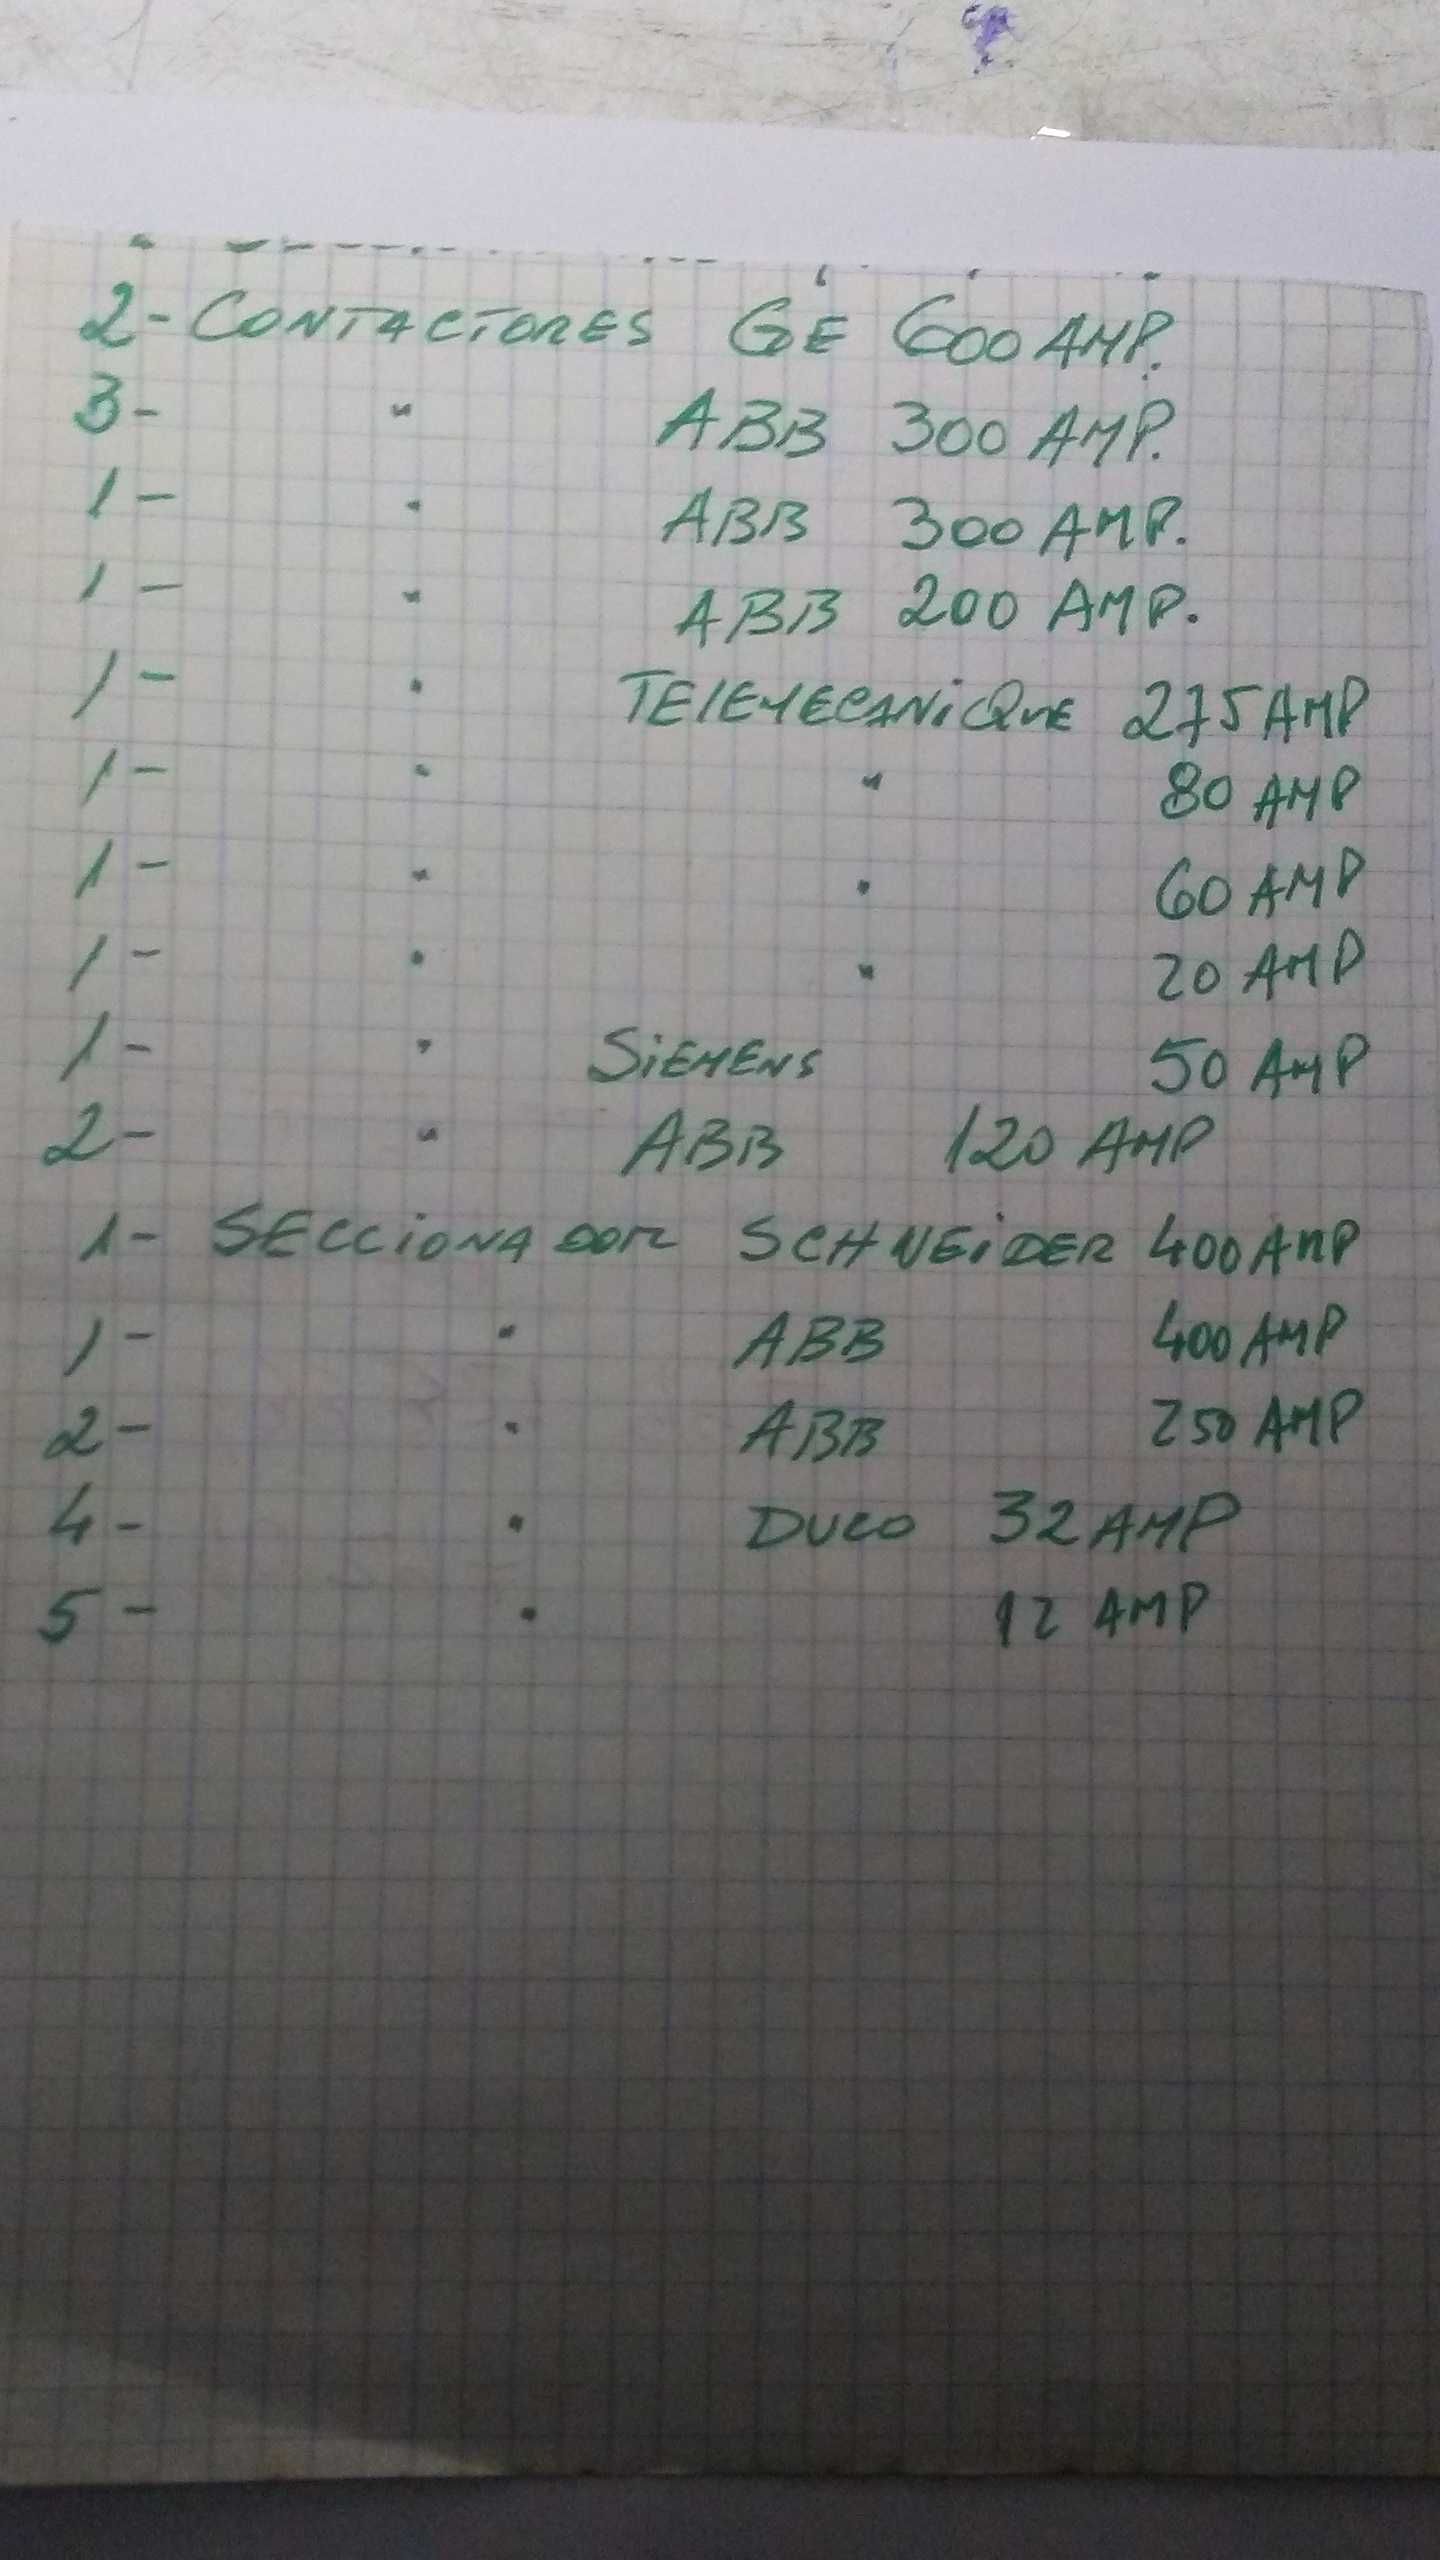 2- CONTACTORES GE 600 AMP.
3- " ABB 300 AMP.
1- " ABB 300 AMP.
1- " ABB 200 AMP.
1- " TELEMECANiQUE 275 AMP
1- " " 80 AMP
1- " " 60 AMP
1- " " 20 AMP
1- " SiEMENS 50 AMP
2- " ABB 120 AMP
1- SECCiONADOR SCHNEiDER 400 AMP
1- " ABB 400 AMP
2- " ABB 250 AMP
4- " 32 AMP
5- " 12 AMP